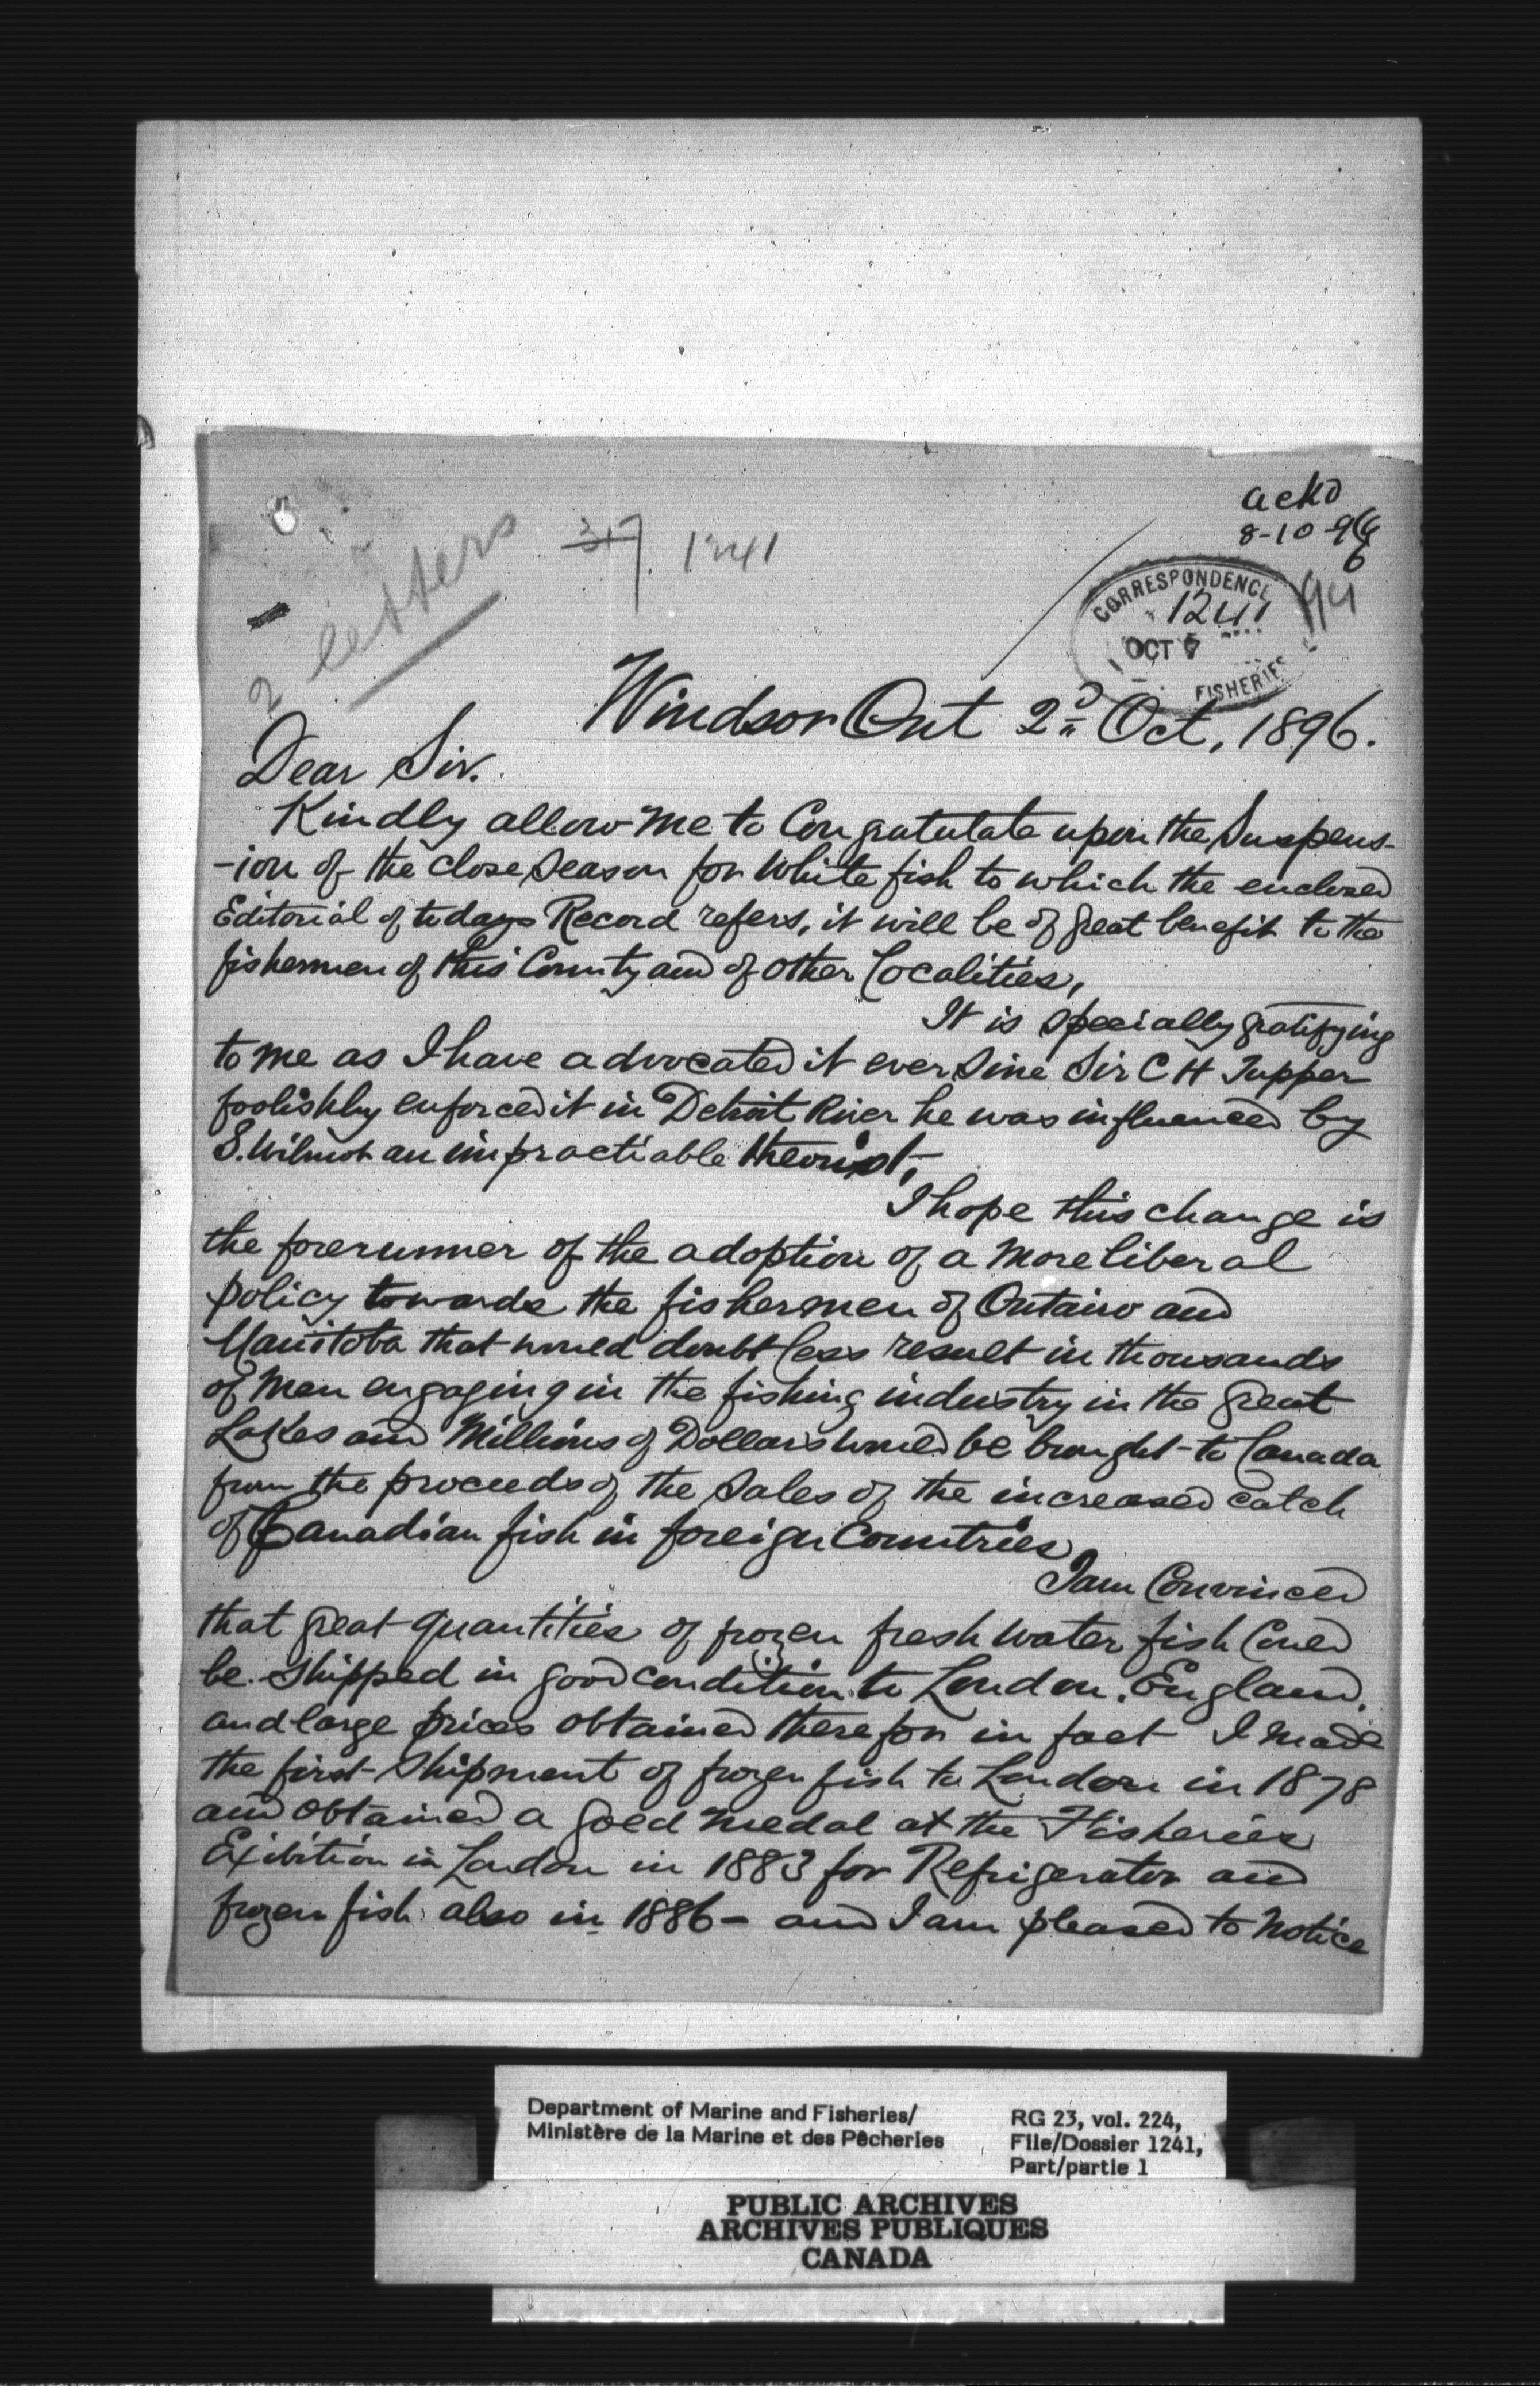 ackd
8-10-96
2 letters
317. 1241
CORRESPONDENCE
1241
OCT 7
FISHERIES
Windsor Ont 2nd Oct, 1896.
Dear Sir.
Kindly allow me to Congratulate upon the Suspens-
-ion of the close season for White fish to which the enclosed
Editorial of todays Record refers, it will be of great benefit to the
fishermen of this County and of other Localities,
It is specially gratifying
to me as I have advocated it ever sine Sir C H Tupper
foolishly enforced it in Detroit River he was influenced by
S. Wilmot an impractiable theorist,
I hope this change is
the forerunner of the adoption of a more liberal
policy towards the fishermen of Ontairo and
Manitoba that would doubtless result in thousands
of Men engaging in the fishing industry in the great
Lakes and Millions of Dollars would be brought to Canada
from the proceeds of the sales of the increased catch
of Canadian fish in foreign Countries
I am Convinced
that great quantities of frozen fresh water fish Could
be shipped in good condition to London, England,
and large prices obtained therefor in fact I made
the first shipment of frozen fish to London in 1878
and obtained a gold medal at the Fisheries
Exibition in London in 1883 for Refrigerator and
frozen fish also in 1886 - and I am pleased to notice
Department of Marine and Fisheries/
Ministère de la Marine et des Pêcheries
RG 23, vol. 224,
File/Dossier 1241,
Part/partie 1
PUBLIC ARCHIVES
ARCHIVES PUBLIQUES
CANADA